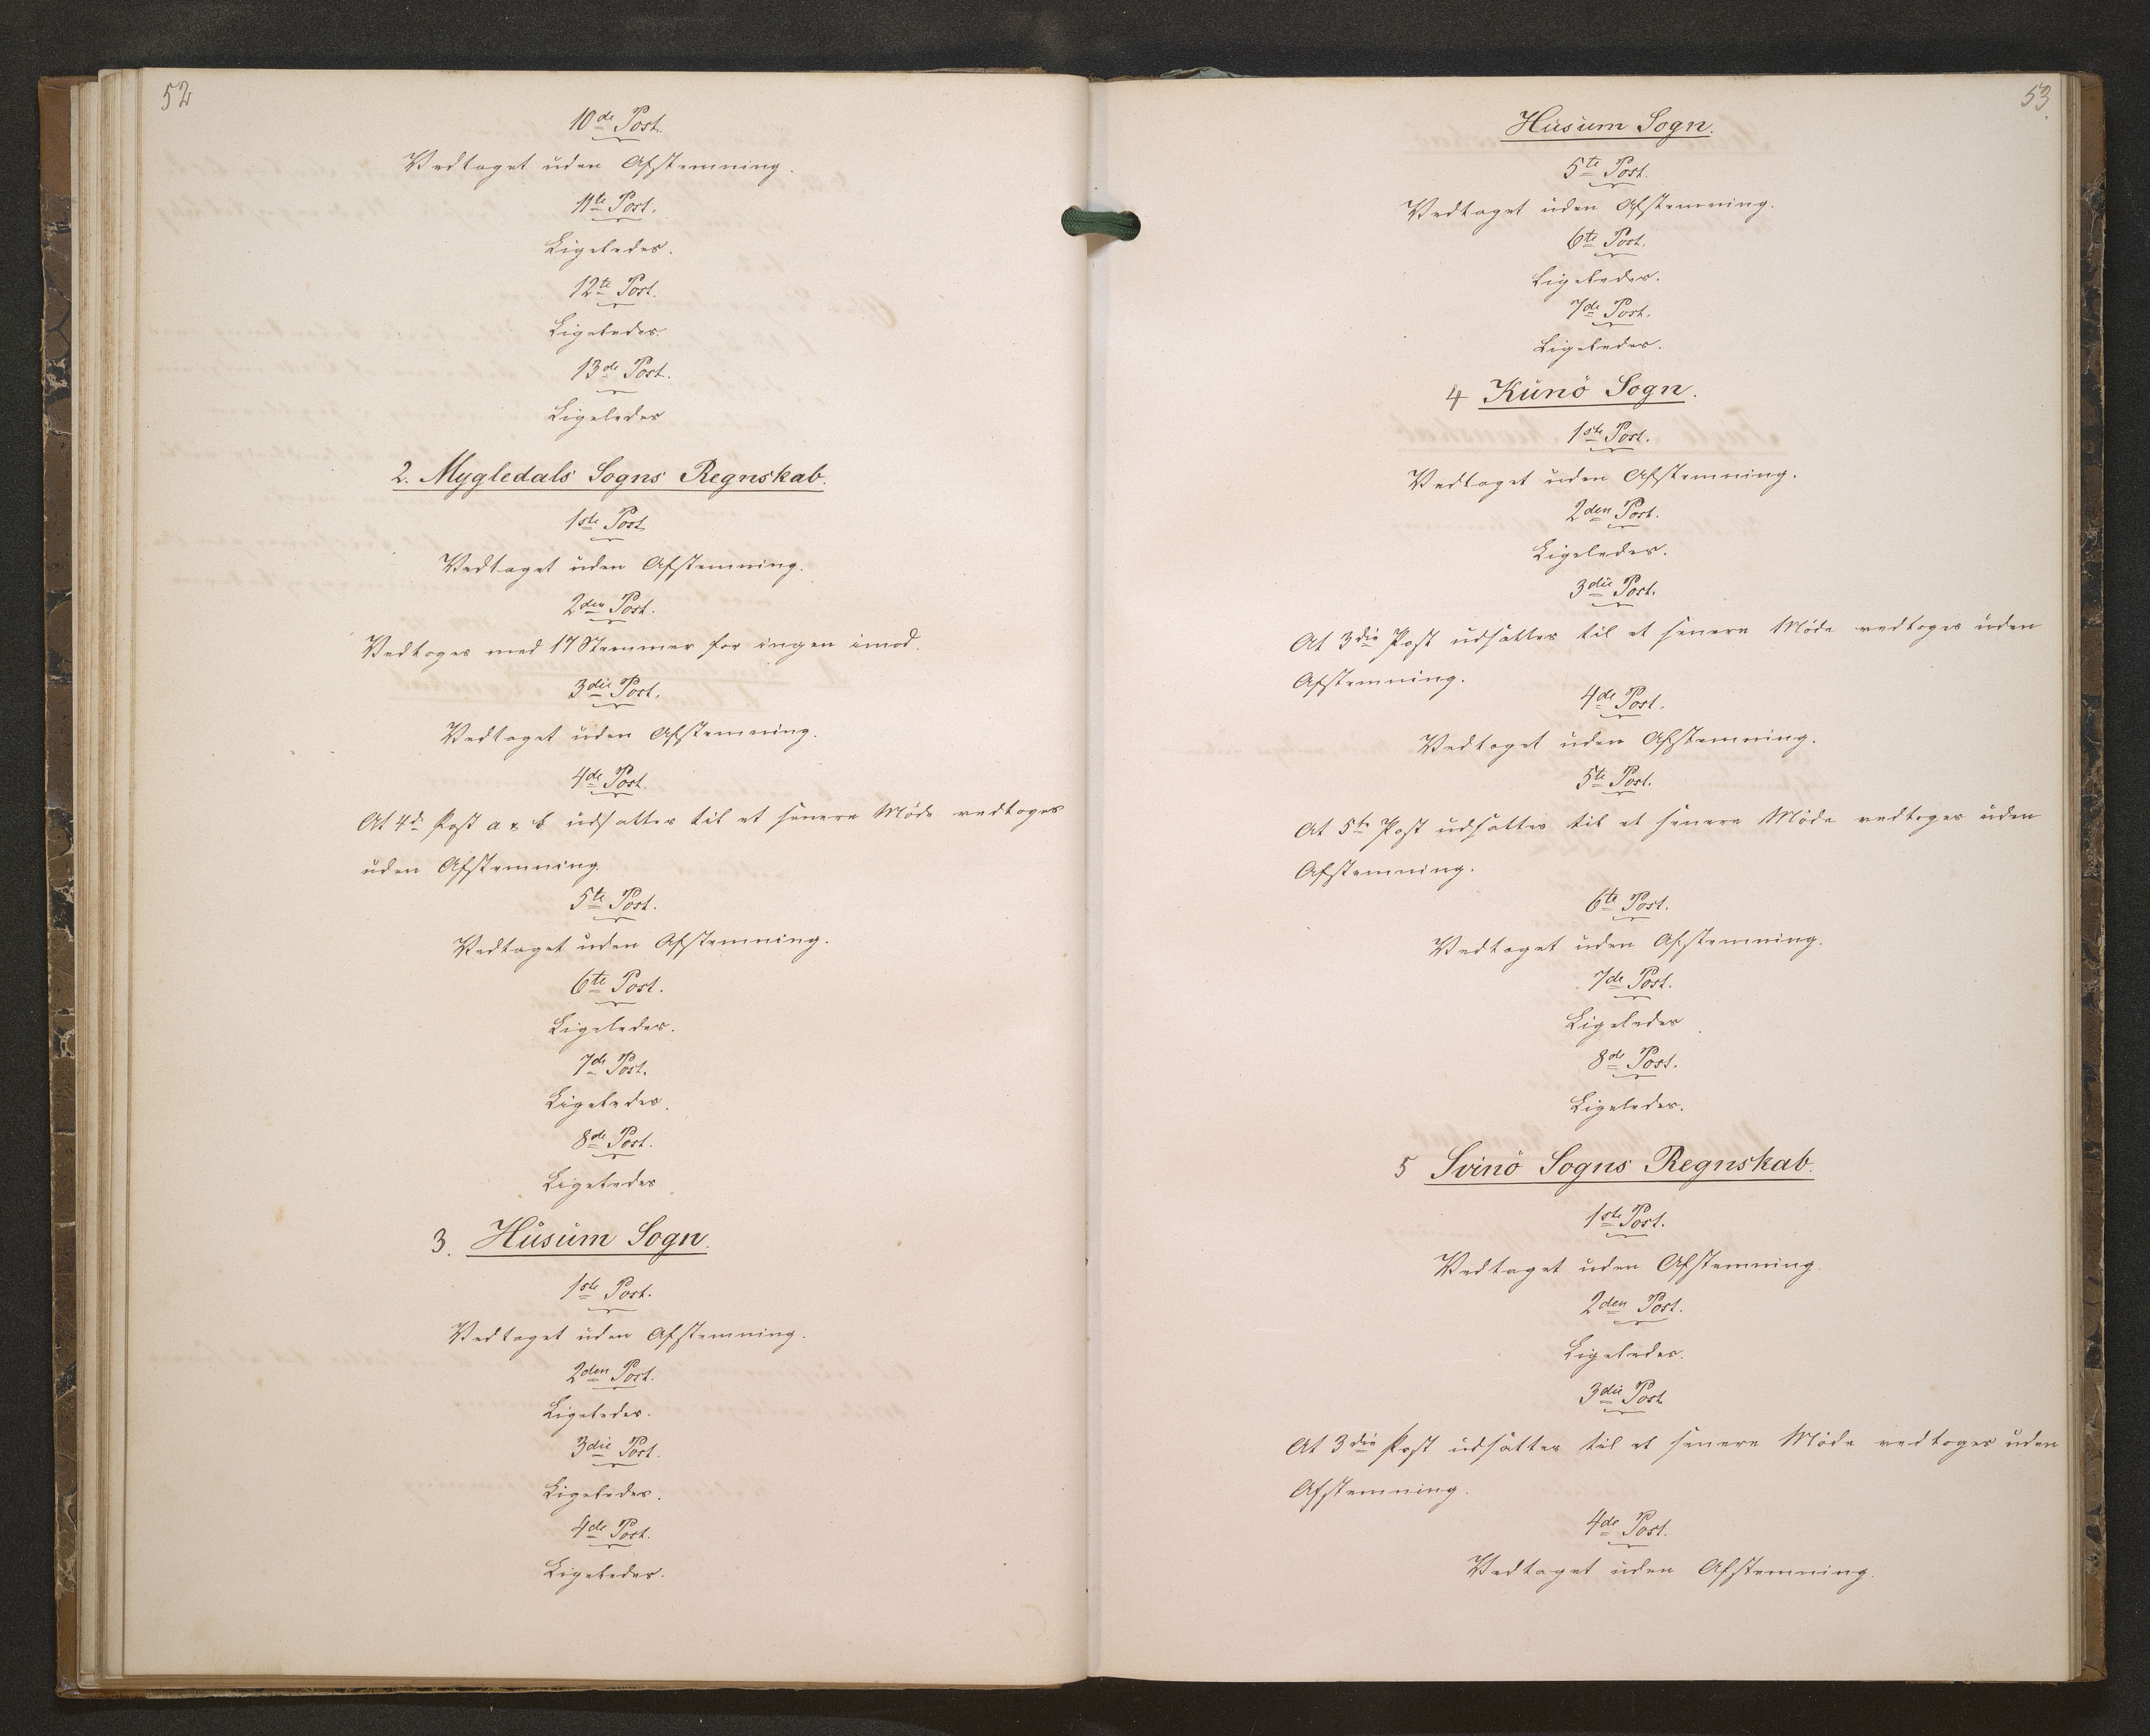 52
10de Post.
Vedtaget uden Afstemning.
11te Post.
Ligeledes.
12te Post.
Ligeledes.
13de Post.
Ligeledes
2. Mygledals Sogns Regnskab.
1ste Post
Vedtaget uden Afstemning.
2den Post.
Vedtoges med 17 Stemmer for ingen imod.
3die Post.
Vedtaget uden Afstemning.
4de Post.
At 4de Post a & b udsattes til et senere Møde vedtoges
uden Afstemning.
5te Post.
Vedtaget uden Afstemning.
6te Post.
Ligeledes.
7de Post.
Ligeledes.
8de Post.
Ligeledes
3. Husum Sogn.
1ste Post.
Vedtaget uden Afstemning.
2den Post.
Ligeledes.
3die Post.
Ligeledes.
4de Post.
Ligeledes.
53.
Husum Sogn.
5te Post.
Vedtaget uden Afstemning.
6te Post.
Ligeledes.
7de Post.
Ligeledes.
4 Kunö Sogn.
1ste Post.
Vedtaget uden Afstemning.
2den Post.
Ligeledes.
3die Post.
At 3die Post udsattes til et senere Møde vedtoges uden
Afstemning.
4de Post.
Vedtaget uden Afstemning.
5te Post.
At 5te Post udsattes til et senere Møde vedtoges uden
Afstemning.
6te Post.
Vedtaget uden Afstemning.
7de Post.
Ligeledes
8de Post.
Ligeledes.
5 Svinö Sogns Regnskab.
1ste Post.
Vedtaget uden Afstemning.
2den Post.
Ligeledes.
3die Post
At 3die Post udsattes til et senere Møde vedtoges uden
Afstemning.
4de Post.
Vedtaget uden Afstemning.